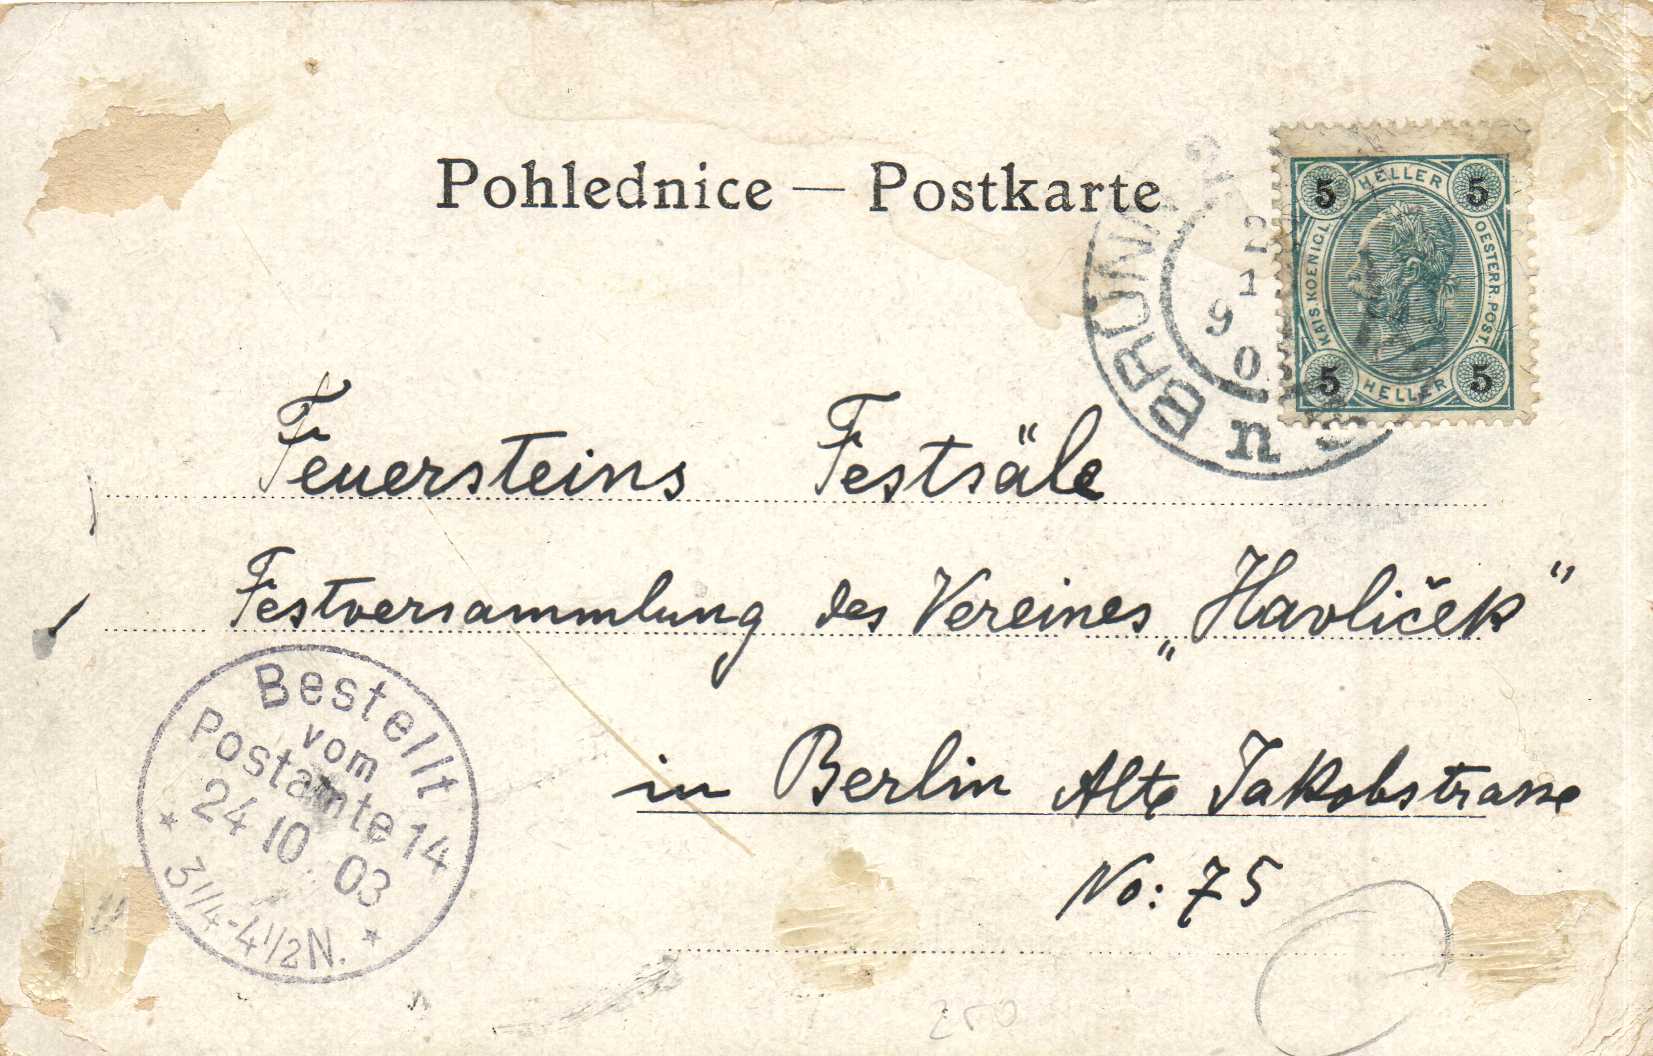 Pohlednice — Postkarte
BRÜNN
n
5 HELLER 5
KAIS. KOENIGL. OESTERR. POST.
5 HELLER 5
Feuersteins Festsäle
Festversammlung des Vereines „Havlíček“
in Berlin Alte Jakobstrasse
No: 75
Bestellt
vom
Postamte 14
24 10. 03
* 3 1/4-4 1/2 N. *
250